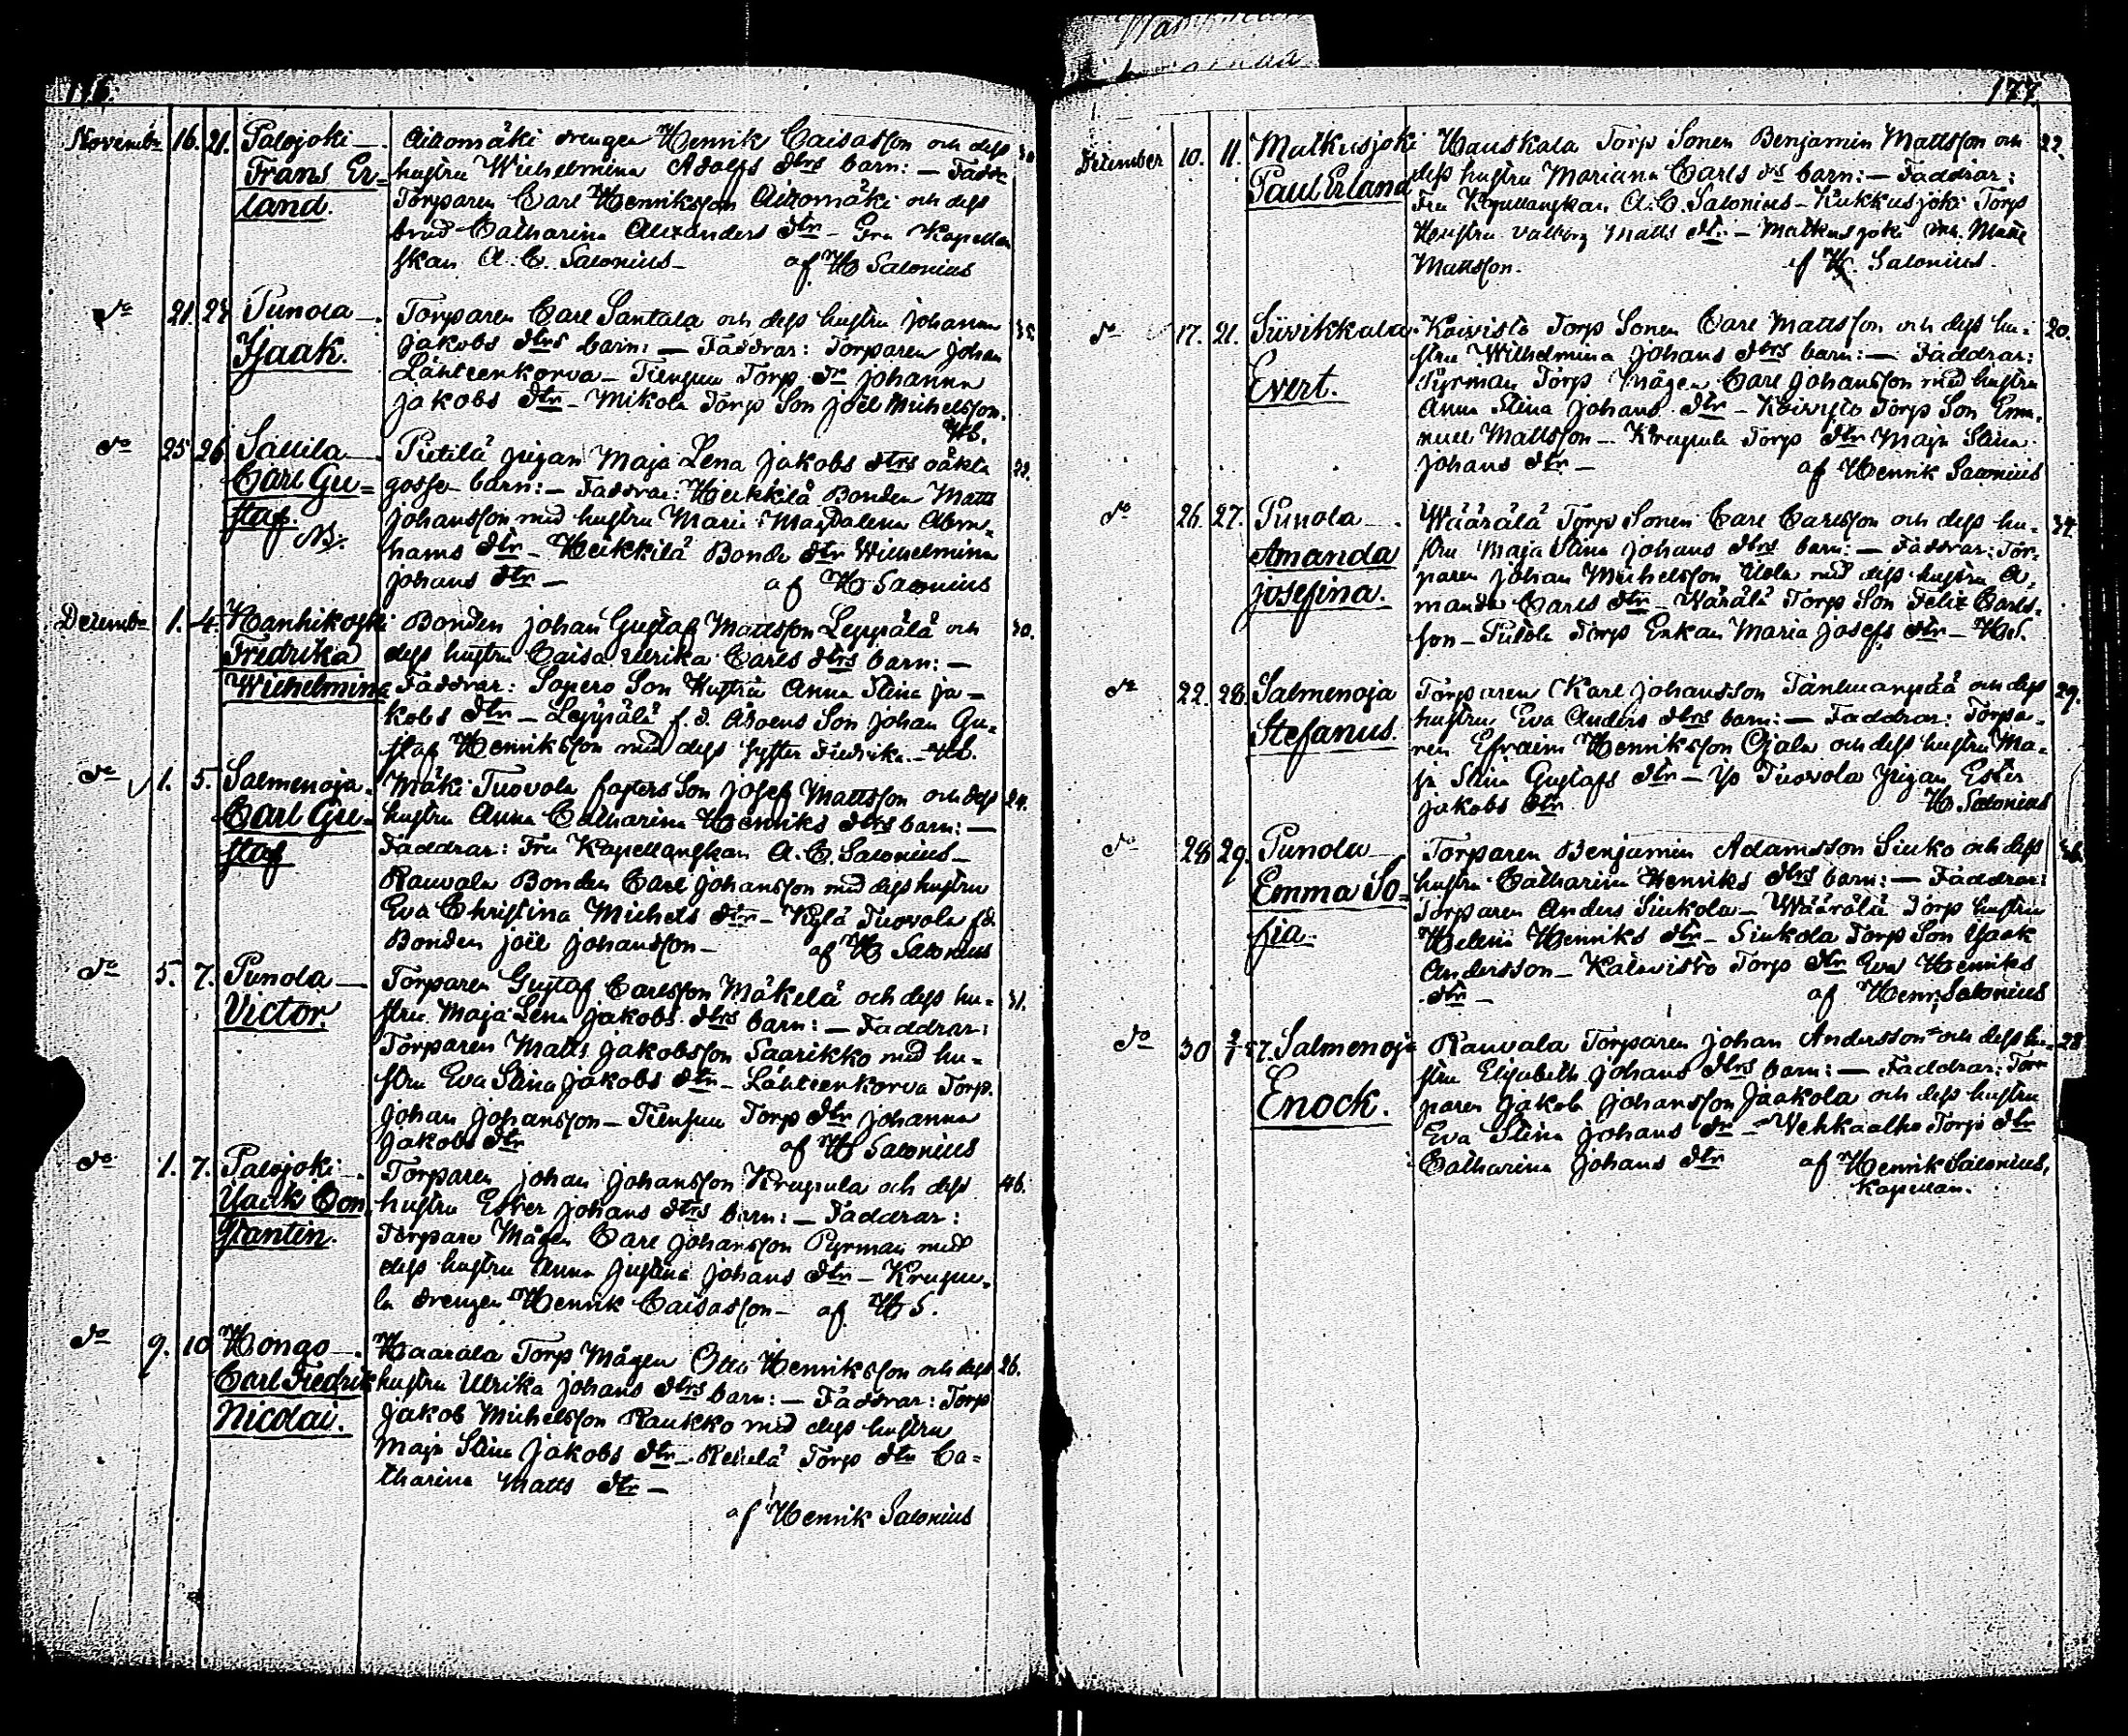 November 16. 21. Palojoki — Aitomäki drengen Henrik Caisasson och dess
Frans Er= hustru Wilhelmina Adolfs dtrs barn: — Fadd:
land. Torparen Carl Henriksson Aitomäki och dess
brud Catharina Alexanders dtr — Fru Kapellan
skan A. C. Salonius — af H Salonius
do 21. 23 Punola — Torparen Carl Santala och dess hustru Johanna 35.
Isaak. Jakobs dtrs barn: — Faddrar: Torparen Johan
Lähteenkorva — Tiensuu Torp dr Johanna
Jakobs dtr — Mikola Torp Son Joël Michelsson.
HS.
do 25 26 Sallila — Pietilä pigan Maja Lena Jakobs dtrs oäkta 22.
Carl Gu= gosse barn: — Faddrar: Heikkilä Bonden Matts
staf. Johansson med hustru Maria Magdalena Abra=
hams dtr — Heikkilä Bonde dtr Wilhelmina
Johans dtr — af H Salonius
December 1. 4. Hanhikoski Bonden Johan Gustaf Mattsson Leppälä och 30.
Fredrika dess hustru Caisa Ulrika Carls dtrs barn: —
Wilhelmina Faddrar: Sopero Son Hustru Anna Stina Ja=
kobs dtr — Leppälä f. d. Åboens Son Johan Gu=
staf Henriksson med dess syster Fredrika. — HS.
do 1. 5. Salmenoja. Mäki Tuovola fosters Son Josef Mattsson och dess 24.
Carl Gu= hustru Anna Catharina Henriks dtrs barn: —
staf Faddrar: Fru Kapellanskan A. C. Salonius —
Rauvala Bonden Carl Johansson med dess hustru
Eva Christina Michels dtr — Kylä Tuovola f.d.
Bonden Joël Johansson — af H Salonius
do 5. 7. Punola — Torparen Gustaf Carlsson Mäkelä och dess hu= 31.
Victor. stru Maja Lena Jakobs dtrs barn: — Faddrar:
Torparen Matts Jakobsson Saarikko med hu=
stru Eva Stina Jakobs dtr — Lähteenkorva Torp.
Johan Johansson — Tiensuu Torp dtr Johanna
Jakobs dtr af H Salonius
do 1. 7. Palojoki — Torparen Johan Johansson Krupula och dess 46.
Isaak Con hustru Ester Johans dtrs barn: — Faddrar:
stantin. Torpare Mågen Carl Johansson Pyrman med
dess hustru Anna Justina Johans dtr — Krupu=
la drengen Henrik Caisasson — af HS.
do 9. 10 Hongo — Haarala Torp Mågen Otto Henriksson och dess 26.
Carl Fredrik hustru Ulrika Johans dtrs barn: — Faddrar: Torp
Nicolai. Jakob Michelsson Raukko med dess hustru
Maja Stina Jakobs dtr — Rekelä Torp dtr Ca=
tharina Matts dtr —
af Henrik Salonius
177
December 10. 11. Matkusjoki Hauskala Torp Sonen Benjamin Mattsson och 22.
Paul Erland dess hustru Mariana Carls drs barn: — Faddrar:
Fru Kapellanskan A. C. Salonius — Kukkusjoki Torp
Hustru Valborg Matts dtr — Matkusjoki Matts
Mattsson. af H. Salonius
do 17. 21. Siivikkala Koivisto Torp Sonen Carl Mattsson och dess hu= 20.
Evert. stru Wilhelmina Johans dtrs barn: — Faddrar:
Pyrman Torp Mågen Carl Johansson med hustru
Anna Stina Johans dtr — Koivisto Torp Son Ema=
nuel Mattsson — Krupula Torp dtr Maja Stina
Johans dtr — af Henrik Salonius
do 26. 27. Punola — Wäärälä Torp Sonen Carl Carlsson och dess hu= 34.
Amanda stru Maja Stina Johans dtrs barn: — Faddrar: Tor=
Josefina. paren Johan Michelsson med dess hustru A=
manda Carls dtr — Wärälä Torp Son Felix Carls=
son — Torp Enkan Maria Josefs dtr — HS.
do 22. 28. Salmenoja Torparen Karl Johansson och dess 29.
Stefanus. hustru Eva Anders dtrs barn: — Faddrar: Torpa=
ren Efraim Henriksson Ojala och dess hustru Ma=
ja Stina Gustafs dtr — Iso Tuovola Pigan Ester
Jakobs dtr H Salonius
do 28 29. Punola — Torparen Benjamin Adamsson Siuko och dess
Emma So= hustru Catharina Henriks dtrs barn: — Faddrar:
fia. Torparen Anders Siukola — Wäärälä Torp hustru
Helena Henriks dtr — Siukola Torp Son Isaak
Andersson — Koivisto Torp dtr Eva Henriks
dtr — af Henr. Salonius
do 30 2/1 57. Salmenoja Rauvala Torparen Johan Andersson och dess hu= 28
Enock. stru Elisabeth Johans dtrs barn: — Faddrar: Tor=
paren Jakob Johansson Jaakola och dess hustru
Eva Stina Johans dr — Vehkaalho Torp dtr
Catharina Johans dtr af Henrik Salonius,
Kapellan.